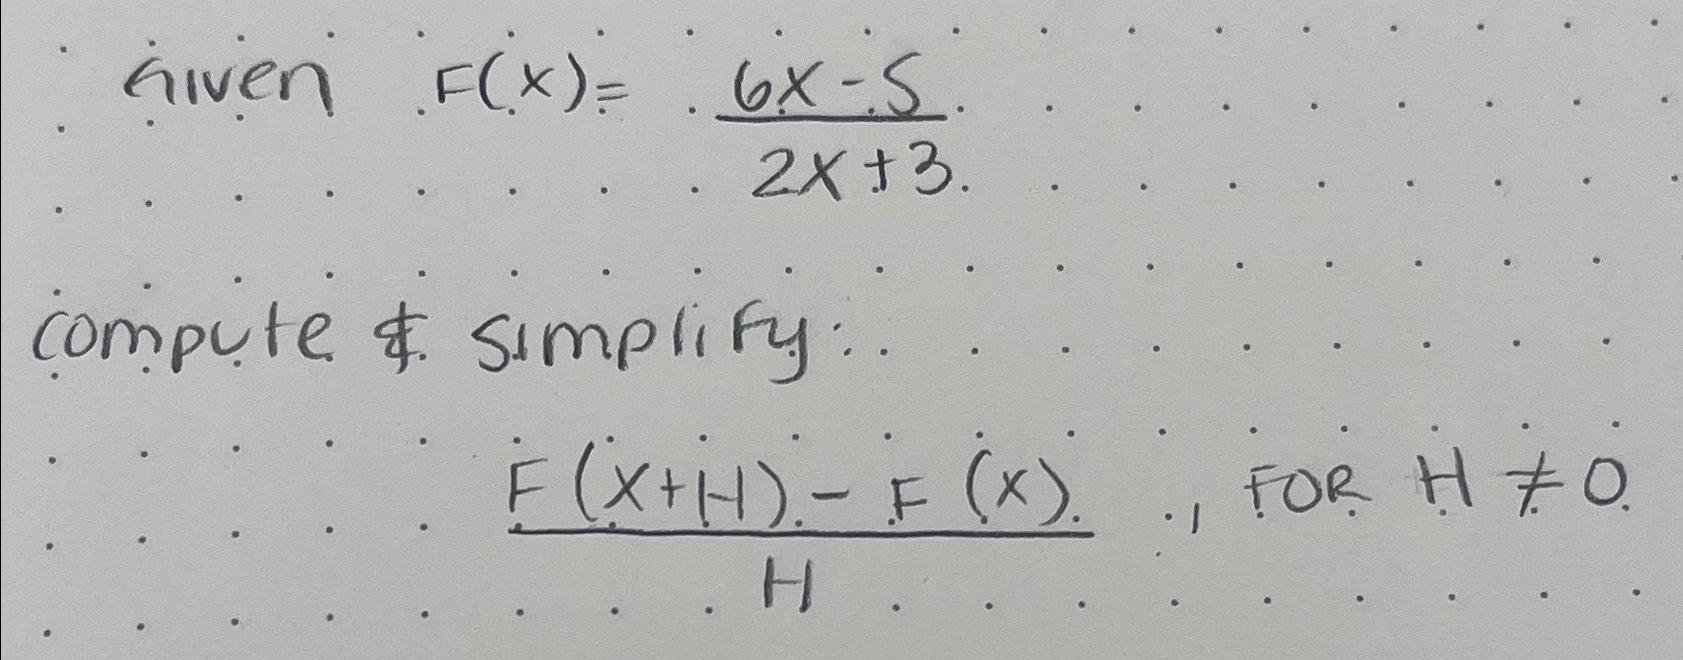 Given F(x)= 6x-5
2x+3
compute & simplify:
F(x+H)-F(x) , FOR H ≠ 0
H